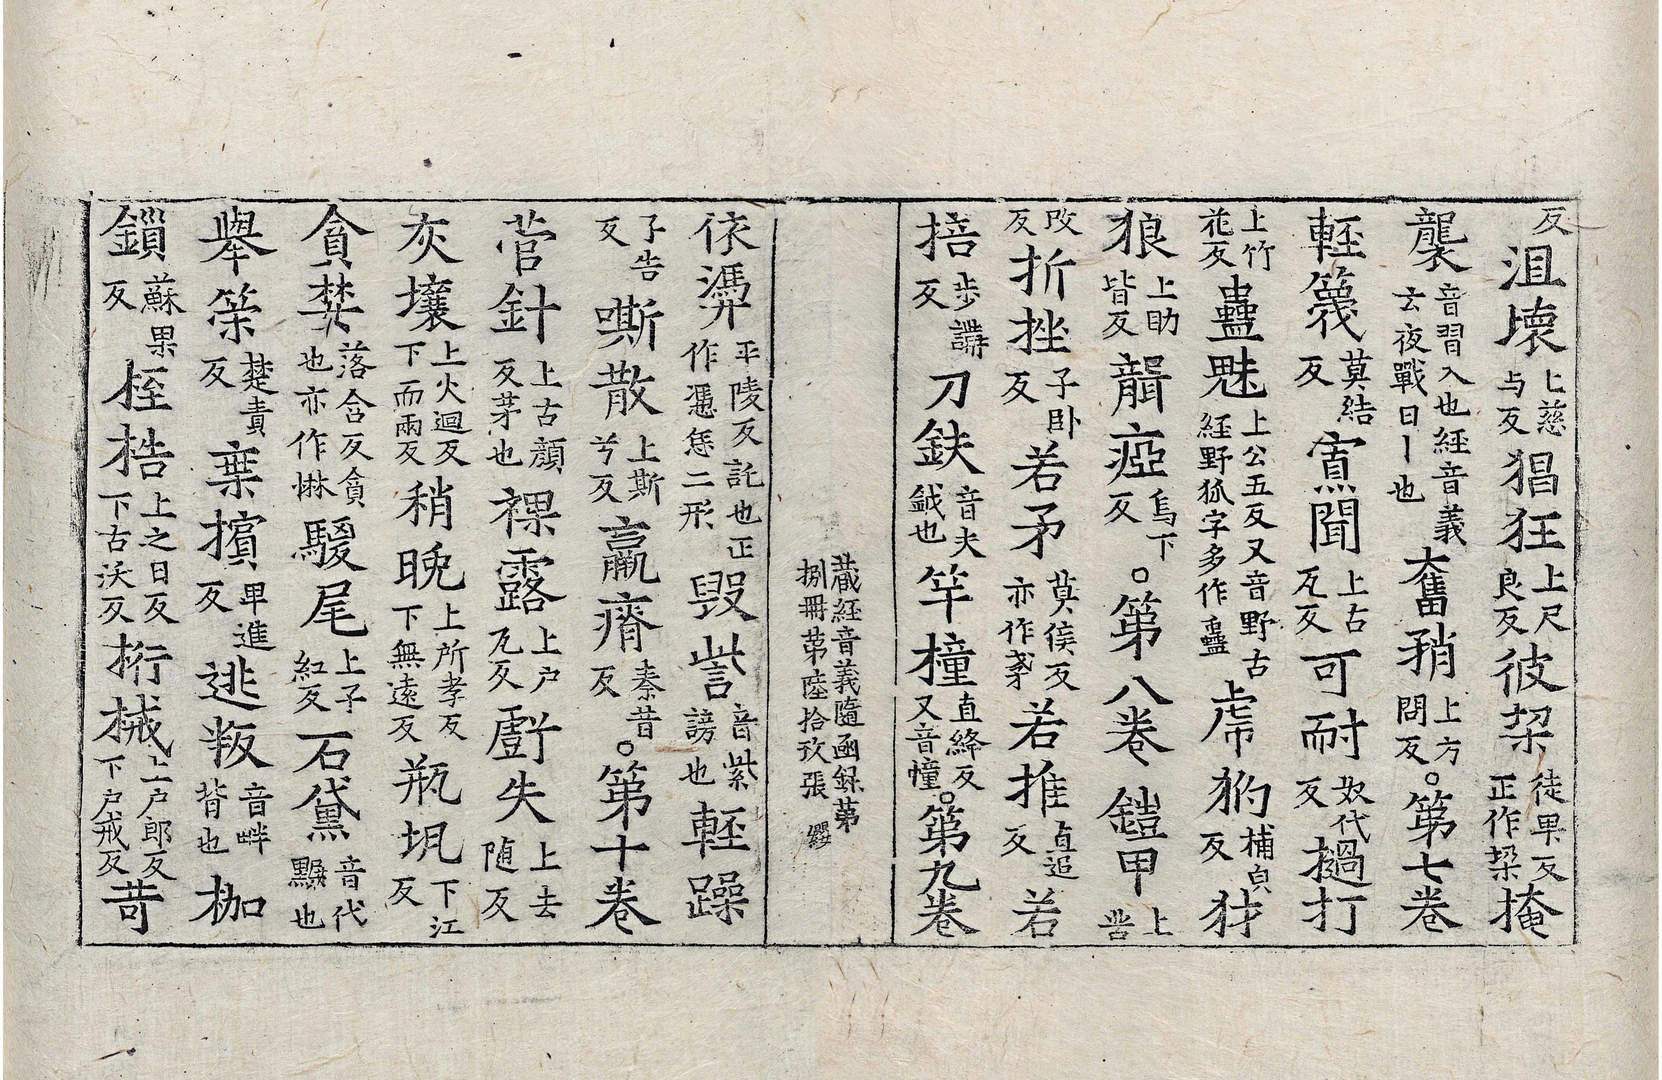 反沮壞上慈与反猖狂上尺良反彼桬徒果反正作桬掩
襲音習入也經音義云夜戰曰丨也奮矟上方問反。第七卷
輕篾莫結反寡聞上古瓦反可耐奴代反撾打
上竹花反蠱魅上公五反又音野古經野狐字多作蠱虎犳補皃反犲
狼上助皆反聾瘂烏下反。第八卷鎧甲上苦
改反折挫子卧反若矛莫侯反亦作䂎若推直追反若
掊步講反刀鈇音夫鉞也竿橦直絳反又音幢。第九卷
藏經音義隨函録第捌冊第陸拾玖張
依慿平陵反託也正作憑凭二形毀訾音紫謗也輕躁
子告反嘶散上斯兮反羸瘠秦昔反。第十卷
菅針上古顔反茅也裸露上户瓦反戲失上去随反
灰壤上火迴反下而兩反稍晚上所孝反下無遠反瓶㼚下江反
貪婪落含反貪也亦作惏騣尾上子紅反石黛音代黱也
舉筞楚責反棄擯卑進反逃叛音畔背也枷
鎻蘇果反桎梏上之日反下古沃反桁械上户郎反下户戒反苛